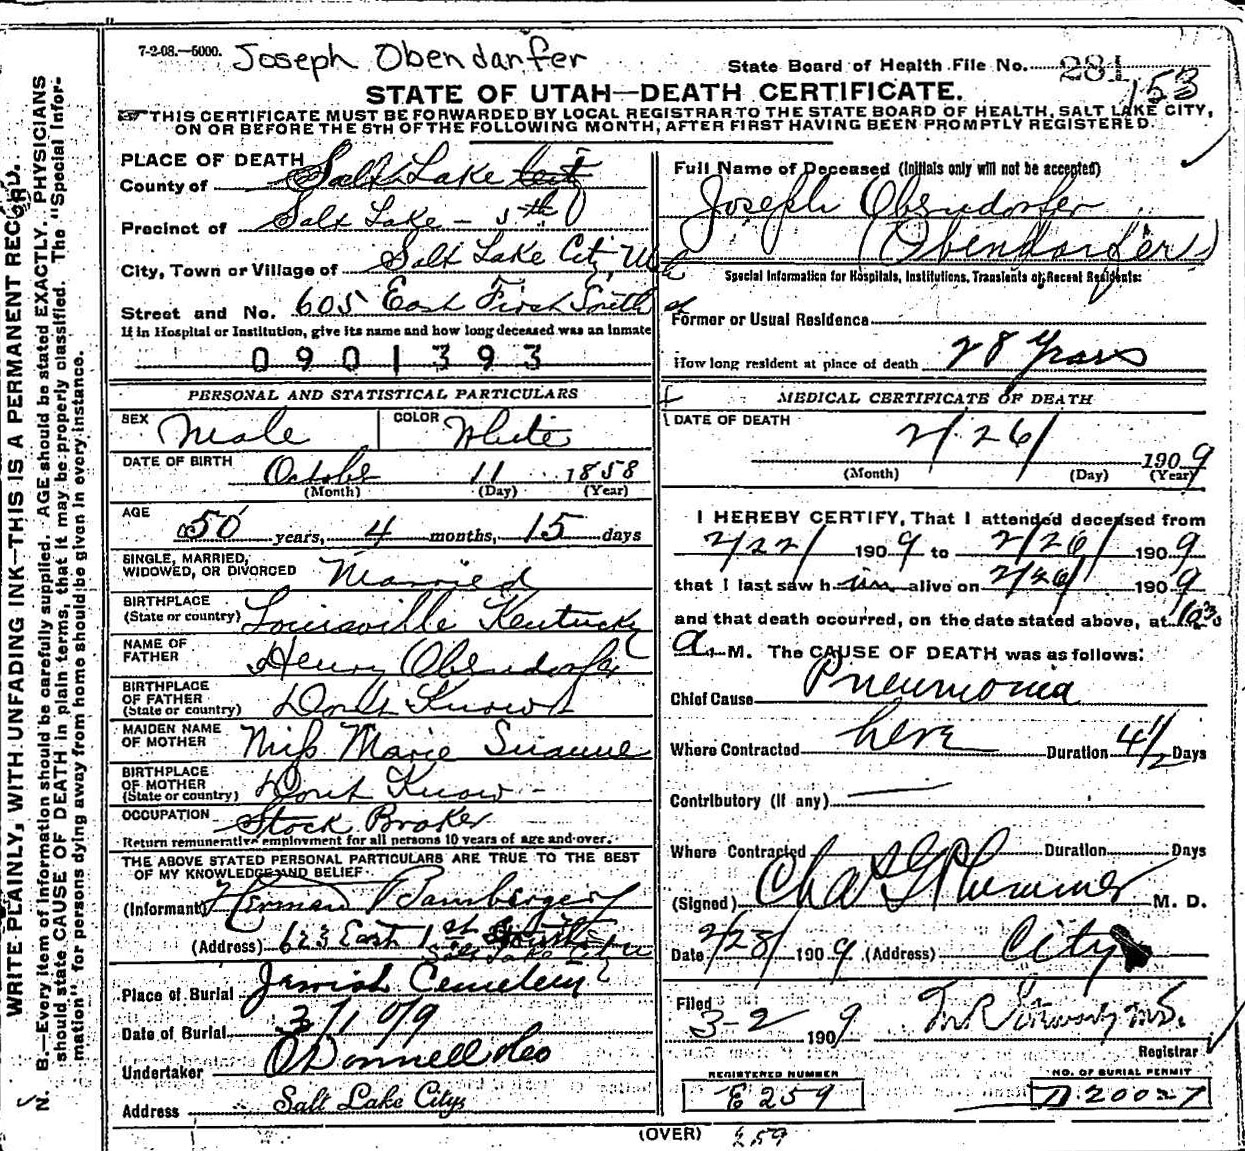 7-2-08.—5000. Joseph Obendarfer
State Board of Health File No. 281 153
STATE OF UTAH—DEATH CERTIFICATE.
THIS CERTIFICATE MUST BE FORWARDED BY LOCAL REGISTRAR TO THE STATE BOARD OF HEALTH, SALT LAKE CITY,
ON OR BEFORE THE 5TH OF THE FOLLOWING MONTH, AFTER FIRST HAVING BEEN PROMPTLY REGISTERED.
WRITE PLAINLY, WITH UNFADING INK—THIS IS A PERMANENT RECORD.
N. B.—Every item of information should be carefully supplied. AGE should be stated EXACTLY. PHYSICIANS
should state CAUSE OF DEATH in plain terms, that it may be properly classified. The "Special Infor-
mation" for persons dying away from home should be given in every instance.
PLACE OF DEATH
County of Salt Lake City
Precinct of Salt Lake - 5th
City, Town or Village of Salt Lake City, Utah
Street and No. 605 East First South
If in Hospital or Institution, give its name and how long deceased was an inmate
0901393
PERSONAL AND STATISTICAL PARTICULARS
SEX Male COLOR White
DATE OF BIRTH October 11 1858
(Month) (Day) (Year)
AGE
50 years, 4 months, 15 days
SINGLE, MARRIED,
WIDOWED, OR DIVORCED Married
BIRTHPLACE
(State or country) Louisville Kentucky
NAME OF
FATHER Henry Obendorfer
BIRTHPLACE
OF FATHER
(State or country) Don't Know
MAIDEN NAME
OF MOTHER Miss Marie
BIRTHPLACE
OF MOTHER
(State or country) Dont Know -
OCCUPATION Stock Broker
Return remunerative employment for all persons 10 years of age and over.
THE ABOVE STATED PERSONAL PARTICULARS ARE TRUE TO THE BEST
OF MY KNOWLEDGE AND BELIEF
(Informant) Herman Bamberger
(Address) 623 East 1st South
Salt Lake City U
Place of Burial Jewish Cemetery
Date of Burial 3/1 09
Undertaker O'Donnell & Co
Address Salt Lake City
Full Name of Deceased (Initials only will not be accepted)
Joseph Obendorfer
(Obendarfer)
Special Information for Hospitals, Institutions, Transients or Recent Residents:
Former or Usual Residence
How long resident at place of death 28 Years
MEDICAL CERTIFICATE OF DEATH
DATE OF DEATH
2/26/ 1909
(Month) (Day) (Year)
I HEREBY CERTIFY, That I attended deceased from
2/22/ 1909 to 2/26/ 1909
that I last saw him alive on 2/26/ 1909
and that death occurred, on the date stated above, at 10 30
a. M. The CAUSE OF DEATH was as follows:
Chief Cause Pneumonia
Where Contracted here Duration 4 1/2 Days
Contributory (if any)
Where Contracted Duration Days
(Signed) Chas G Plummer M. D.
Date 2/28/ 1909 (Address) City
Filed
3-2 1909
Registrar
REGISTERED NUMBER NO. OF BURIAL PERMIT
E 259 D 20027
(OVER) 259